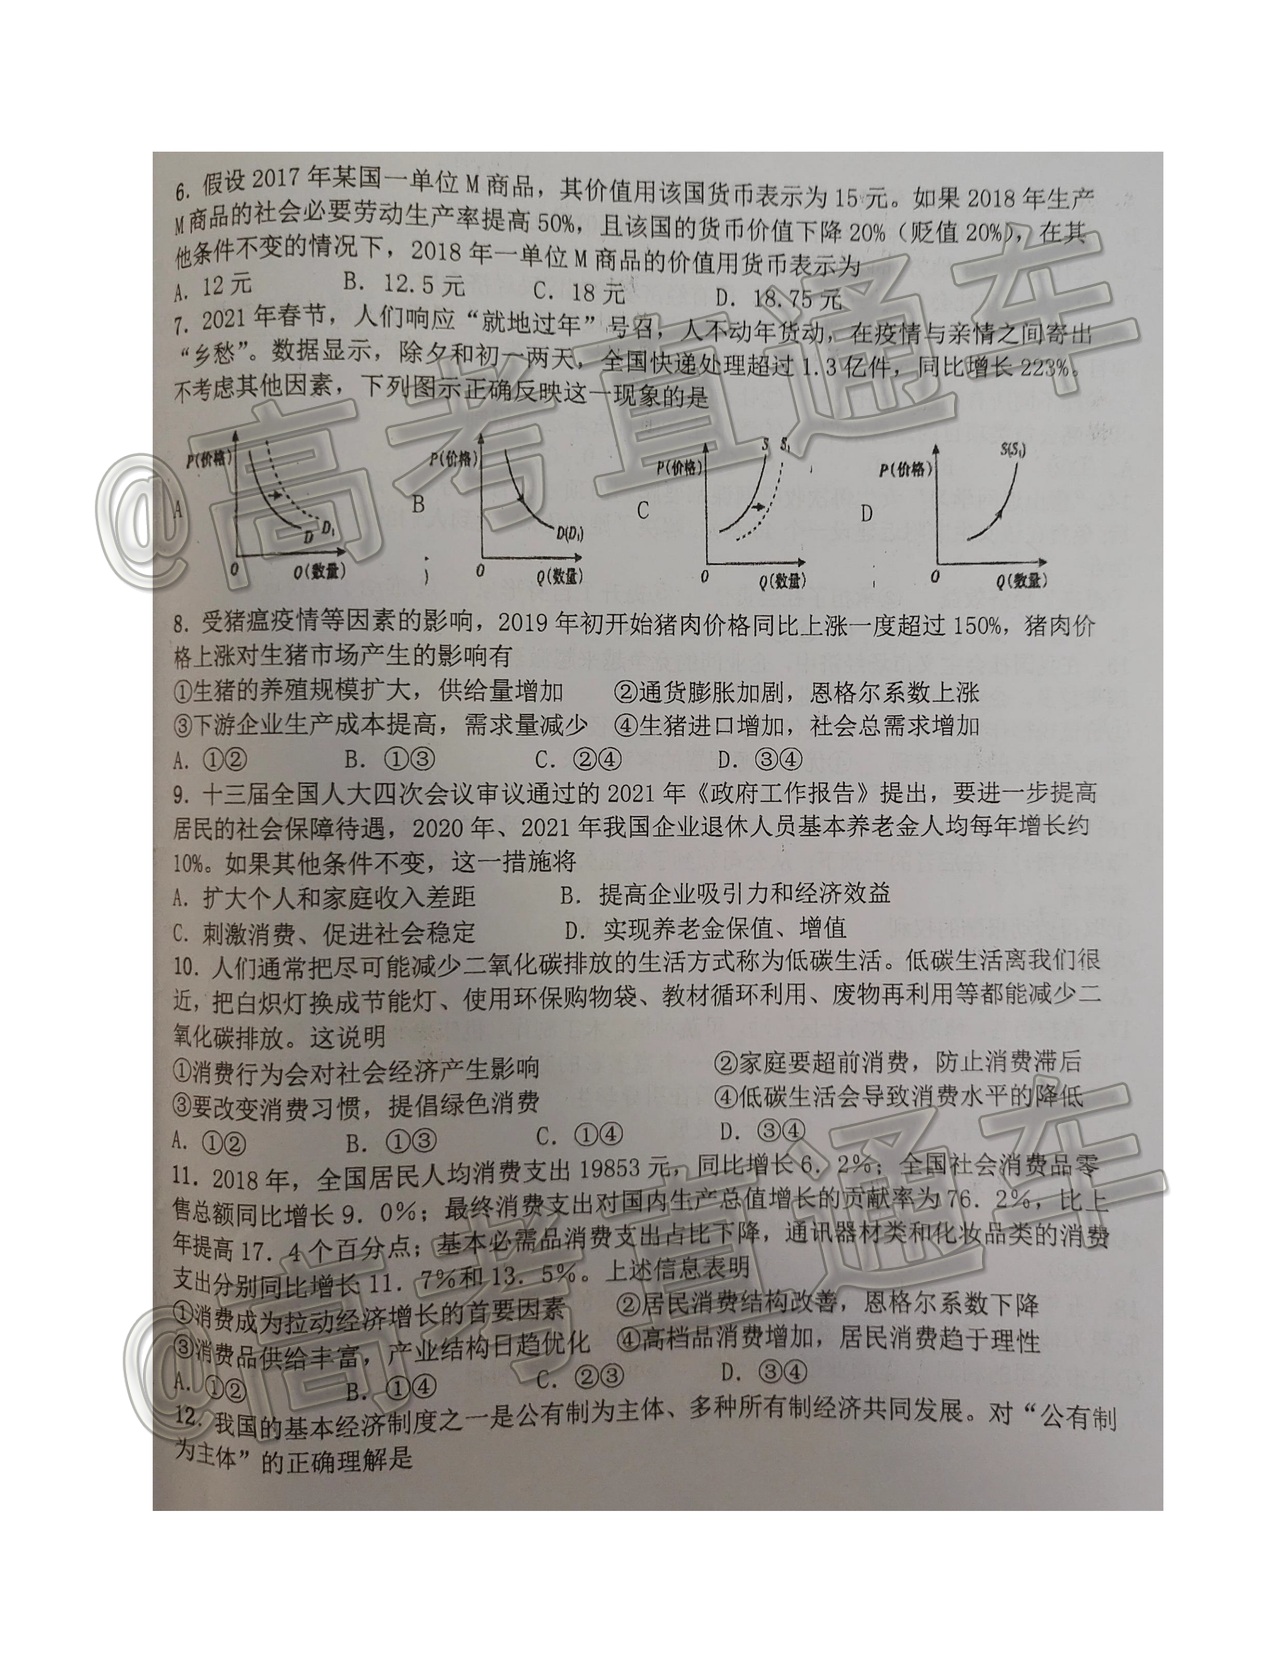 6. 假设 2017 年某国一单位 M 商品，其价值用该国货币表示为 15 元。如果 2018 年生产
M 商品的社会必要劳动生产率提高 50%，且该国的货币价值下降 20%（贬值 20%），在其
他条件不变的情况下，2018 年一单位 M 商品的价值用货币表示为
A. 12 元 B. 12.5 元 C. 18 元 D. 18.75 元
7. 2021 年春节，人们响应“就地过年”号召，人不动年货动，在疫情与亲情之间寄出
“乡愁”。数据显示，除夕和初一两天，全国快递处理超过 1.3 亿件，同比增长 223%。
不考虑其他因素，下列图示正确反映这一现象的是
A P(价格) D D₁ O Q(数量)
B P(价格) D(D₁) O Q(数量)
C P(价格) S S₁ O Q(数量)
D P(价格) S(S₁) O Q(数量)
8. 受猪瘟疫情等因素的影响，2019 年初开始猪肉价格同比上涨一度超过 150%，猪肉价
格上涨对生猪市场产生的影响有
①生猪的养殖规模扩大，供给量增加 ②通货膨胀加剧，恩格尔系数上涨
③下游企业生产成本提高，需求量减少 ④生猪进口增加，社会总需求增加
A. ①② B. ①③ C. ②④ D. ③④
9. 十三届全国人大四次会议审议通过的 2021 年《政府工作报告》提出，要进一步提高
居民的社会保障待遇，2020 年、2021 年我国企业退休人员基本养老金人均每年增长约
10%。如果其他条件不变，这一措施将
A. 扩大个人和家庭收入差距 B. 提高企业吸引力和经济效益
C. 刺激消费、促进社会稳定 D. 实现养老金保值、增值
10. 人们通常把尽可能减少二氧化碳排放的生活方式称为低碳生活。低碳生活离我们很
近，把白炽灯换成节能灯、使用环保购物袋、教材循环利用、废物再利用等都能减少二
氧化碳排放。这说明
①消费行为会对社会经济产生影响 ②家庭要超前消费，防止消费滞后
③要改变消费习惯，提倡绿色消费 ④低碳生活会导致消费水平的降低
A. ①② B. ①③ C. ①④ D. ③④
11. 2018 年，全国居民人均消费支出 19853 元，同比增长 6．2%；全国社会消费品零
售总额同比增长 9．0%；最终消费支出对国内生产总值增长的贡献率为 76．2%，比上
年提高 17．4 个百分点；基本必需品消费支出占比下降，通讯器材类和化妆品类的消费
支出分别同比增长 11．7%和 13．5%。上述信息表明
①消费成为拉动经济增长的首要因素 ②居民消费结构改善，恩格尔系数下降
③消费品供给丰富，产业结构日趋优化 ④高档品消费增加，居民消费趋于理性
A. ①② B. ①④ C. ②③ D. ③④
12. 我国的基本经济制度之一是公有制为主体、多种所有制经济共同发展。对“公有制
为主体”的正确理解是
@高考直通车
@高考直通车